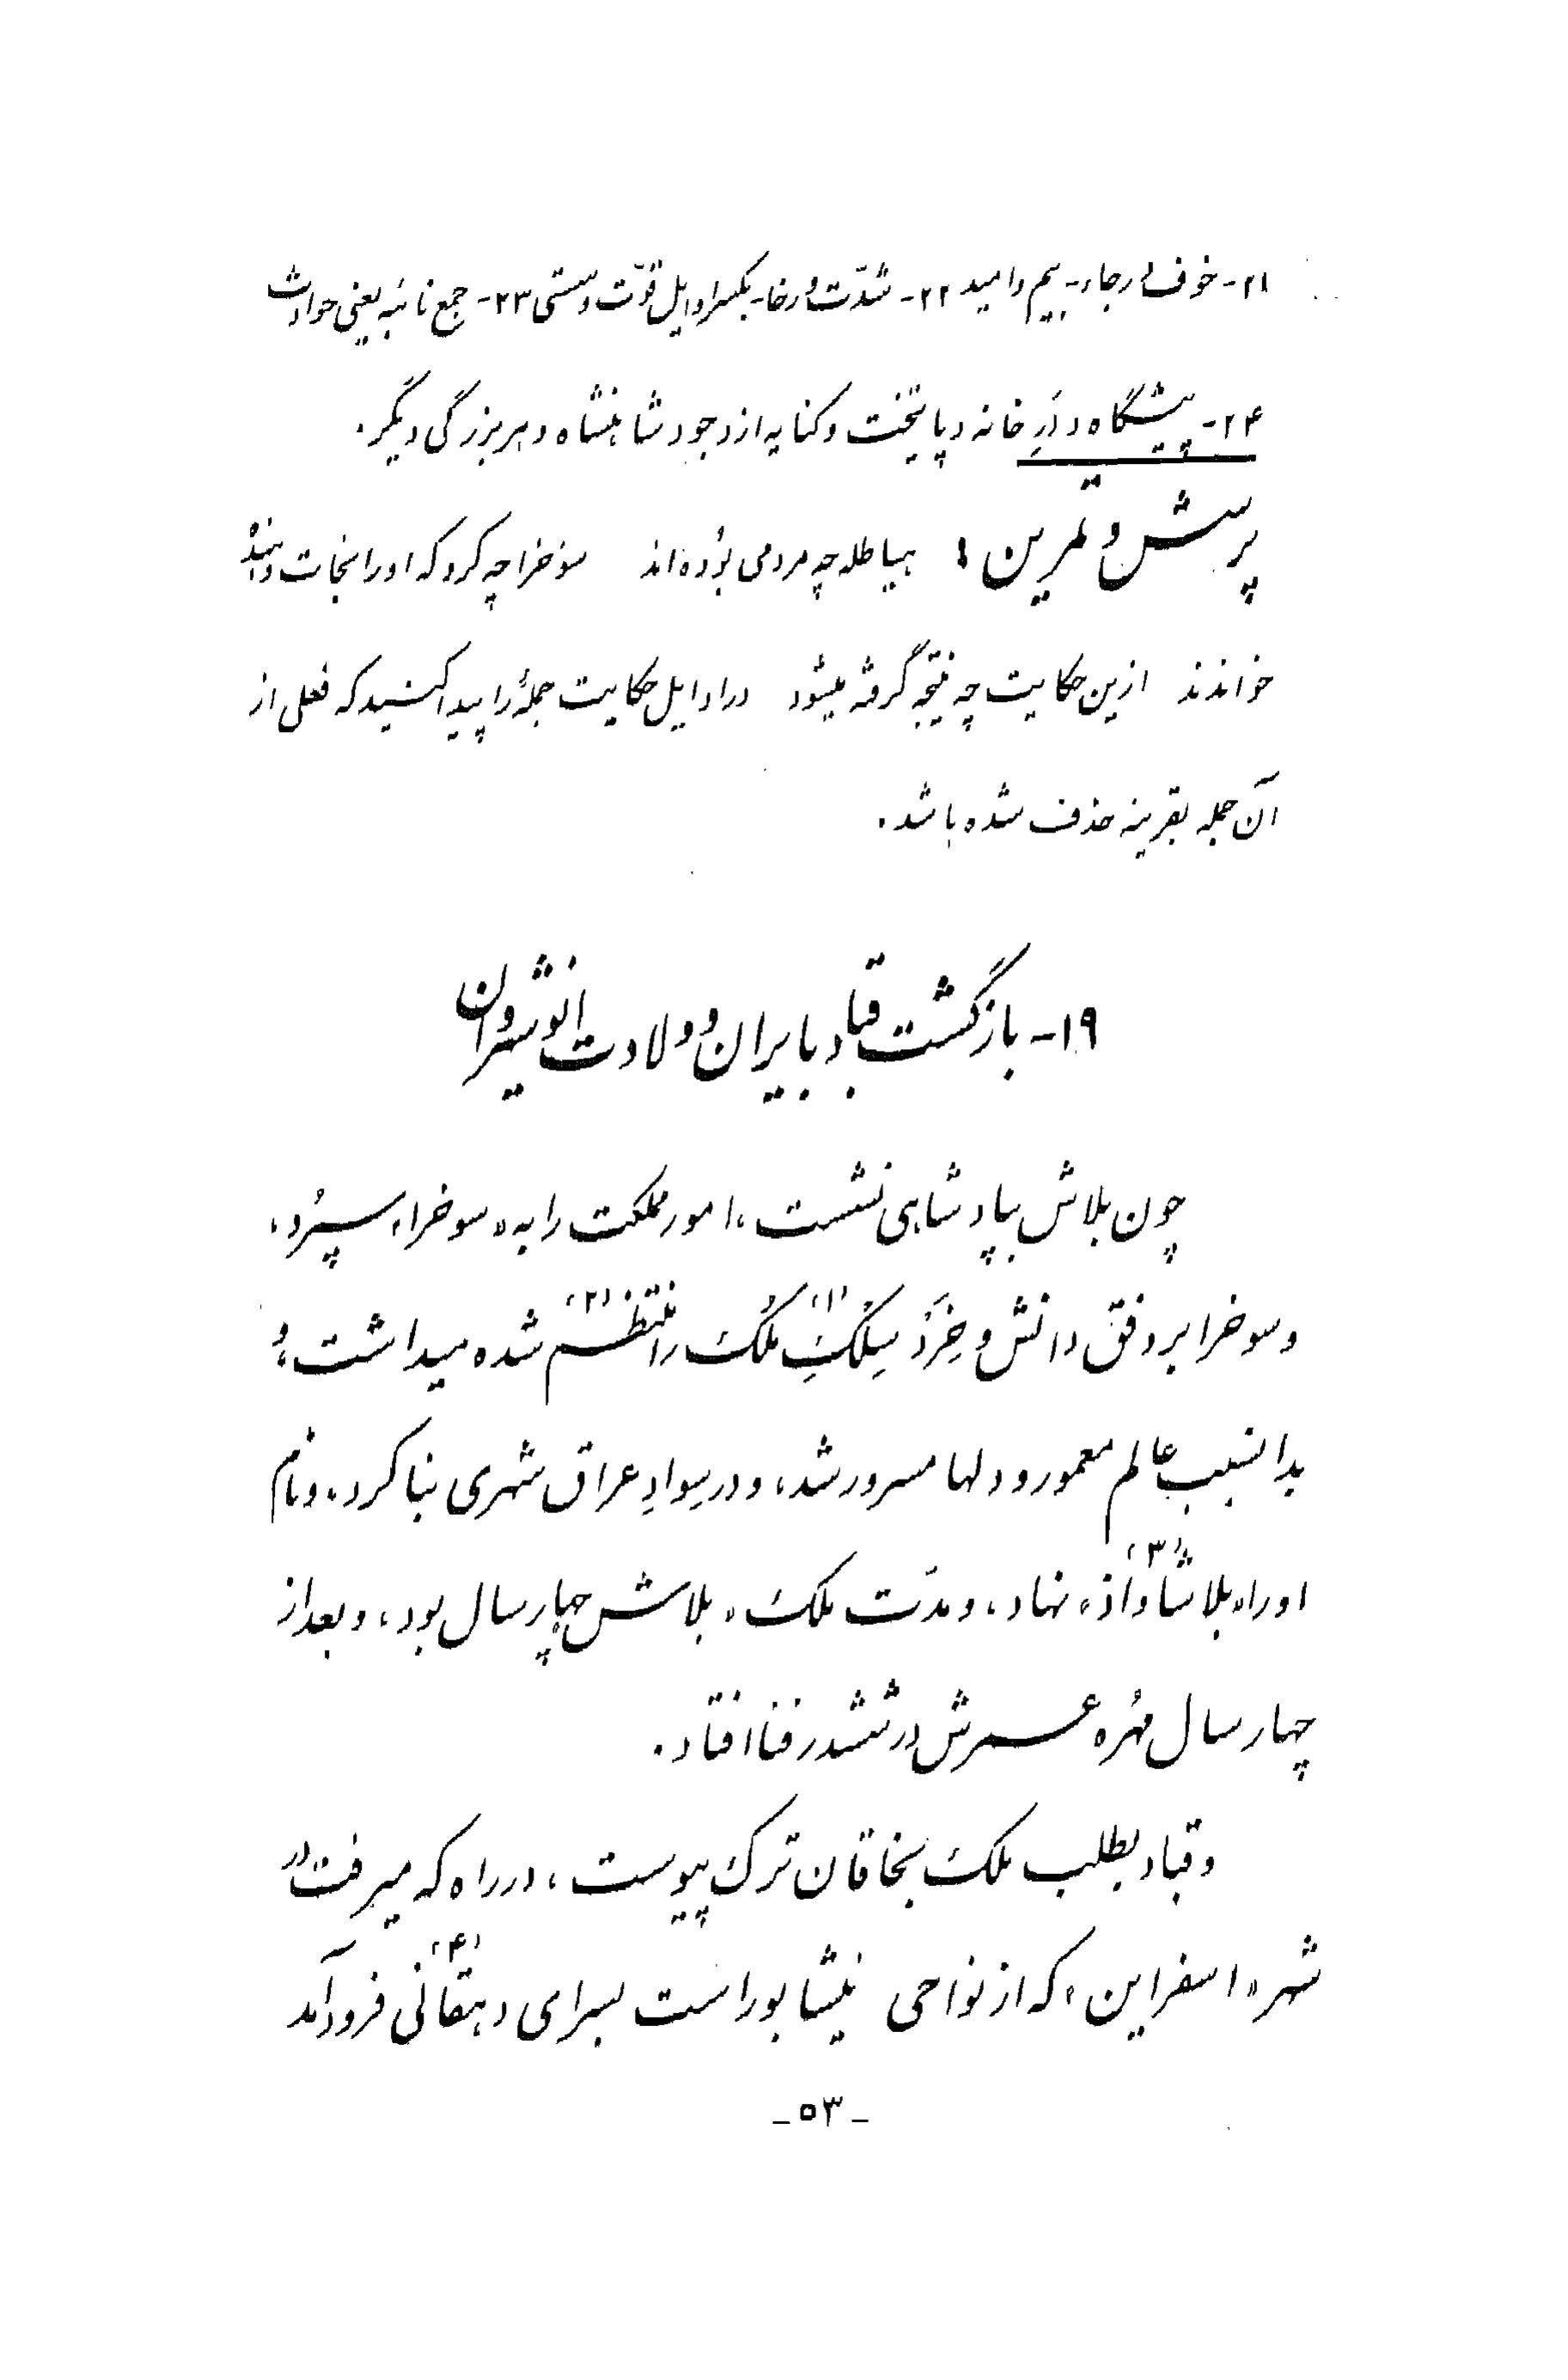 ۲۱- خوف و رجاء- بیم و امید ۲۲- شدّت و رخا- بکسر اوایل قوّت و سستی ۲۳- جمع نائبه یعنی حوادث
۲۴- پیشگاه و دَرِ خانه و پایتخت و کنایه از وجود شاهنشاه و هر بزرگی دیگر.
پرسش و تمرین: هیاطله چه مردمی بوُده‌اند سوخرا چه کرد که او را نجات دهنده
خواندند ازین حکایت چه نتیجه گرفته میشود در اوایل حکایت جملهٔ را پیدا کنید که فعلی از
آن جمله بقرینه حذف شده باشد.
۱۹- بازگشت قباد بایران و ولادت انوشیروان
چون بلاش بپادشاهی نشست، امور مملکت را به «سوخرا» سپُرد،
و سوخرا بر وفق دانش و خِرَد سِلکِ (۱) مُلک را منتظم (۲) شده میداشت، و
بدانسبب عالم معمور و دلها مسرور شد، و در سِوادِ عراق شهری بنا کرد، و نام
او را «بلاشاواذ» (۳) نهاد، و مدّت ملک «بلاش» چهار سال بود، و بعد از
چهار سال مُهره عمرش در ششدر فنا افتاد.
و قباد بطلب ملک بخاقان ترک پیوست، در راه که میرفت در
شهر «اسفراین» که از نواحی نیشابور است بسرای دهقانی (۴) فرود آمد
-۵۳-